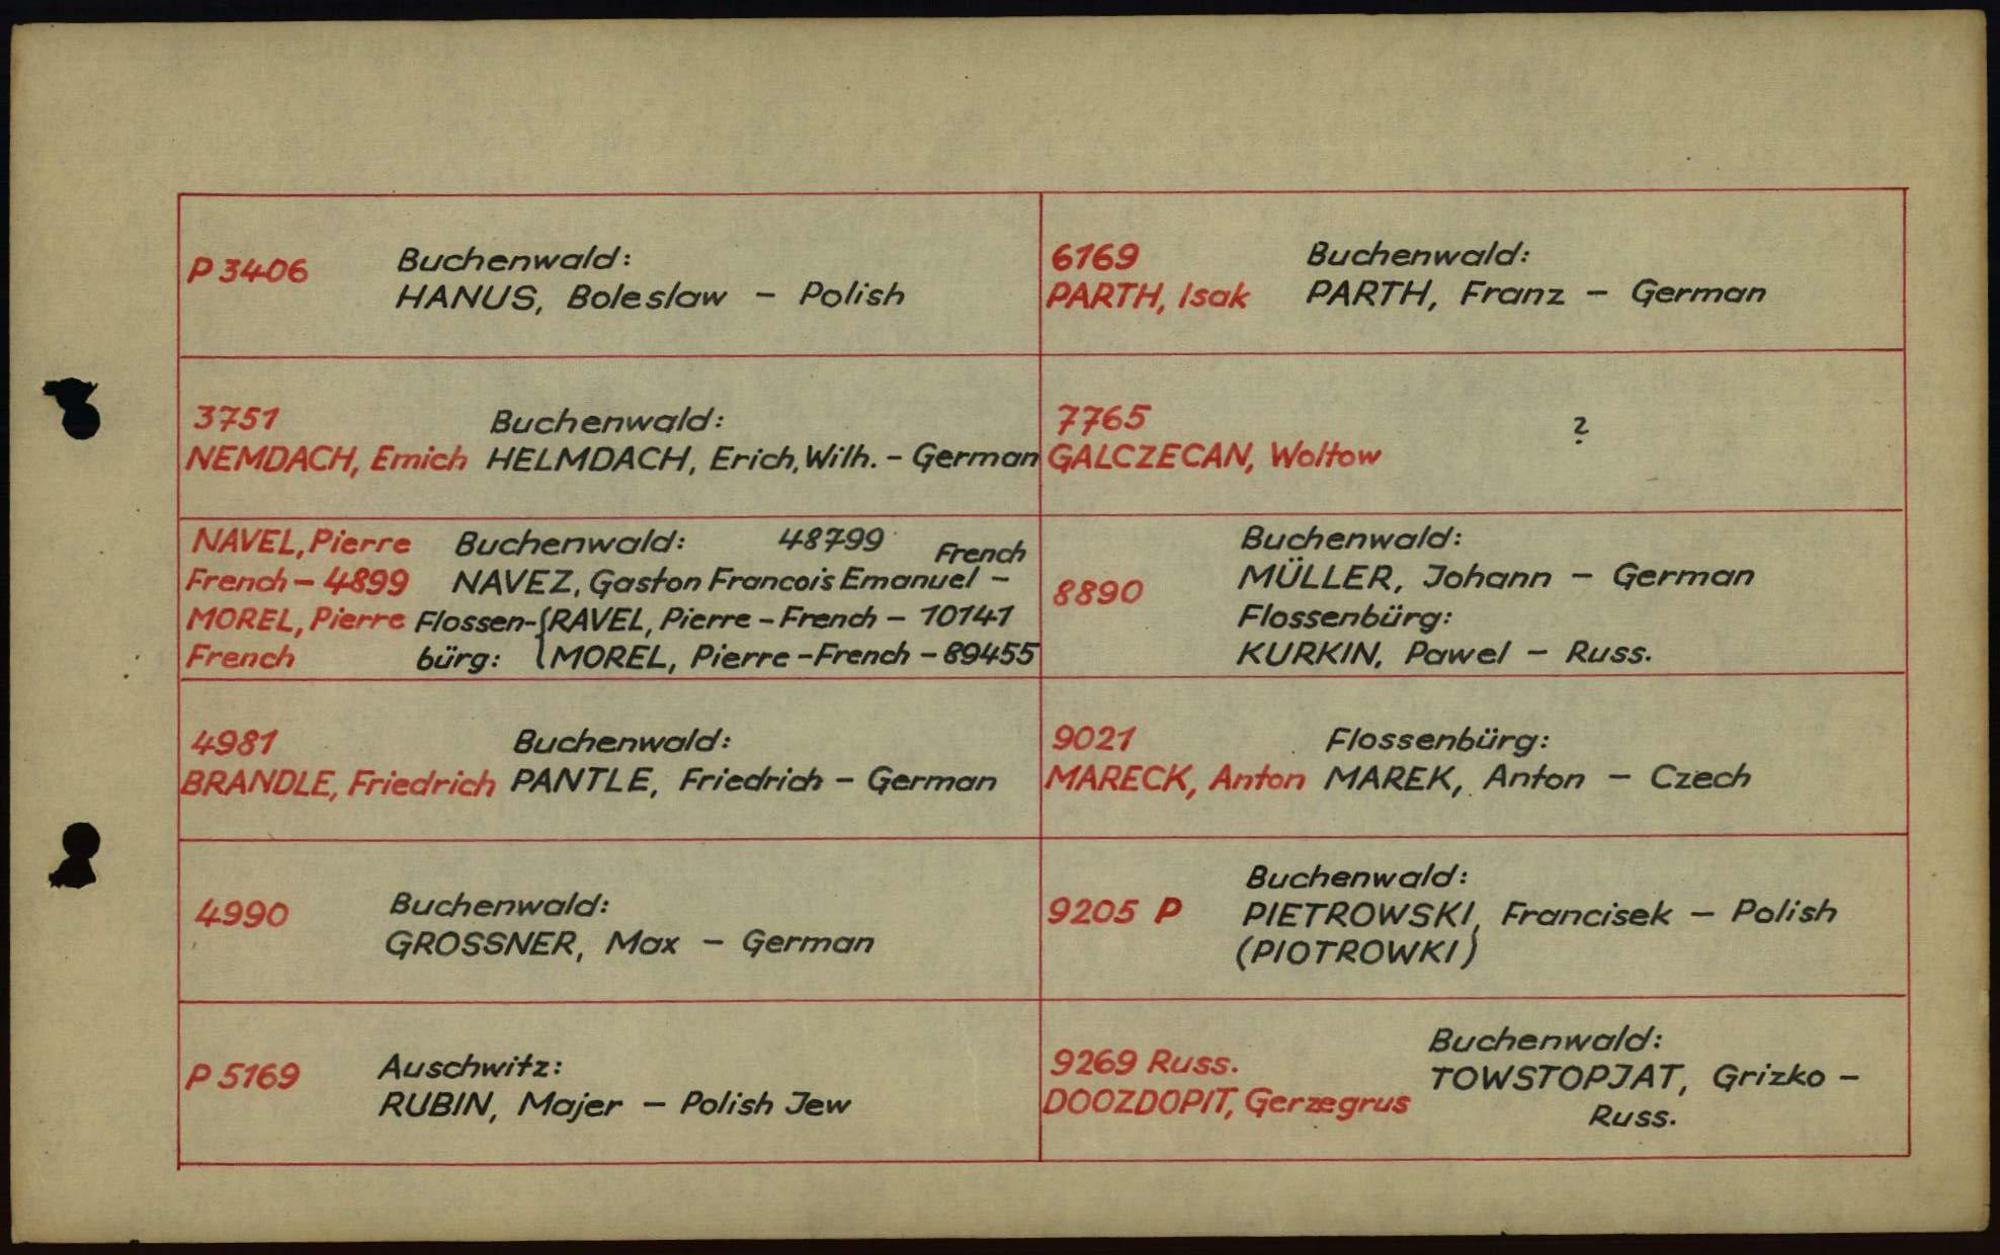 P 3406
Buchenwald:
HANUS, Boleslaw – Polish
6169
PARTH, Isak
Buchenwald:
PARTH, Franz – German
3751
NEMDACH, Emich
Buchenwald:
HELMDACH, Erich, Wilh. – German
7765
GALCZECAN, Woltow
?
NAVEL, Pierre
French – 4899
MOREL, Pierre
French
Buchenwald: 48799 French
NAVEZ, Gaston Francois Emanuel –
Flossen- { RAVEL, Pierre – French – 10141
bürg: MOREL, Pierre – French – 89455
8890
Buchenwald:
MÜLLER, Johann – German
Flossenbürg:
KURKIN, Pawel – Russ.
4981
BRANDLE, Friedrich
Buchenwald:
PANTLE, Friedrich – German
9021
MARECK, Anton
Flossenbürg:
MAREK, Anton – Czech
4990
Buchenwald:
GROSSNER, Max – German
9205 P
Buchenwald:
PIETROWSKI, Francisek – Polish
(PIOTROWKI)
P 5169
Auschwitz:
RUBIN, Majer – Polish Jew
9269 Russ.
DOOZDOPIT, Gerzegrus
Buchenwald:
TOWSTOPJAT, Grizko –
Russ.